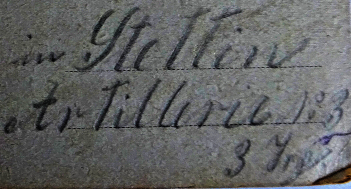 in Stettin
Artillerie No 3
3